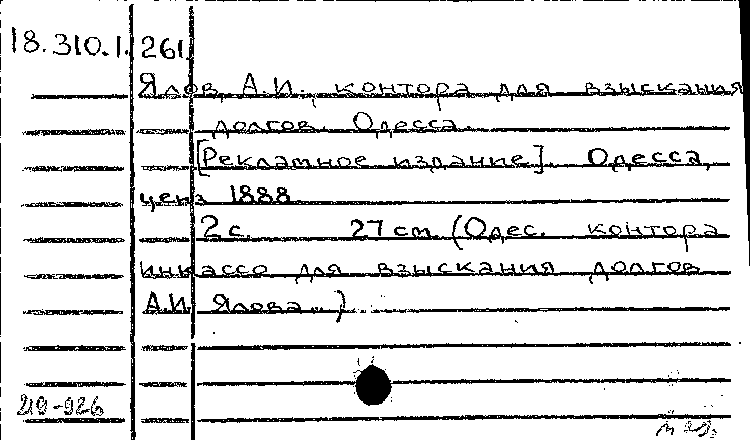 18.310.1.261
Ялов, А.И., контора для взыскания
долгов. Одесса.
[Рекламное издание]. Одесса,
ценз 1888.
2 с. 27 см. (Одес. контора
инкассо для взыскания долгов
А.И. Ялова...)
219-926